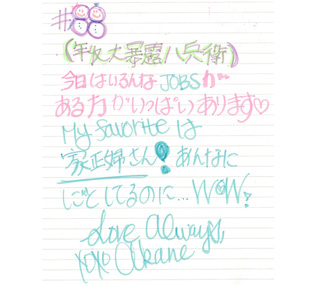 #88
(年収大暴露八兵衛)
今日はいろんなJOBSが
ある力がいっぱいあります♡
My favoriteは
家政婦さん! あんなに
しごとしてるのに...WOW!
Love Always,
xoxo Akane